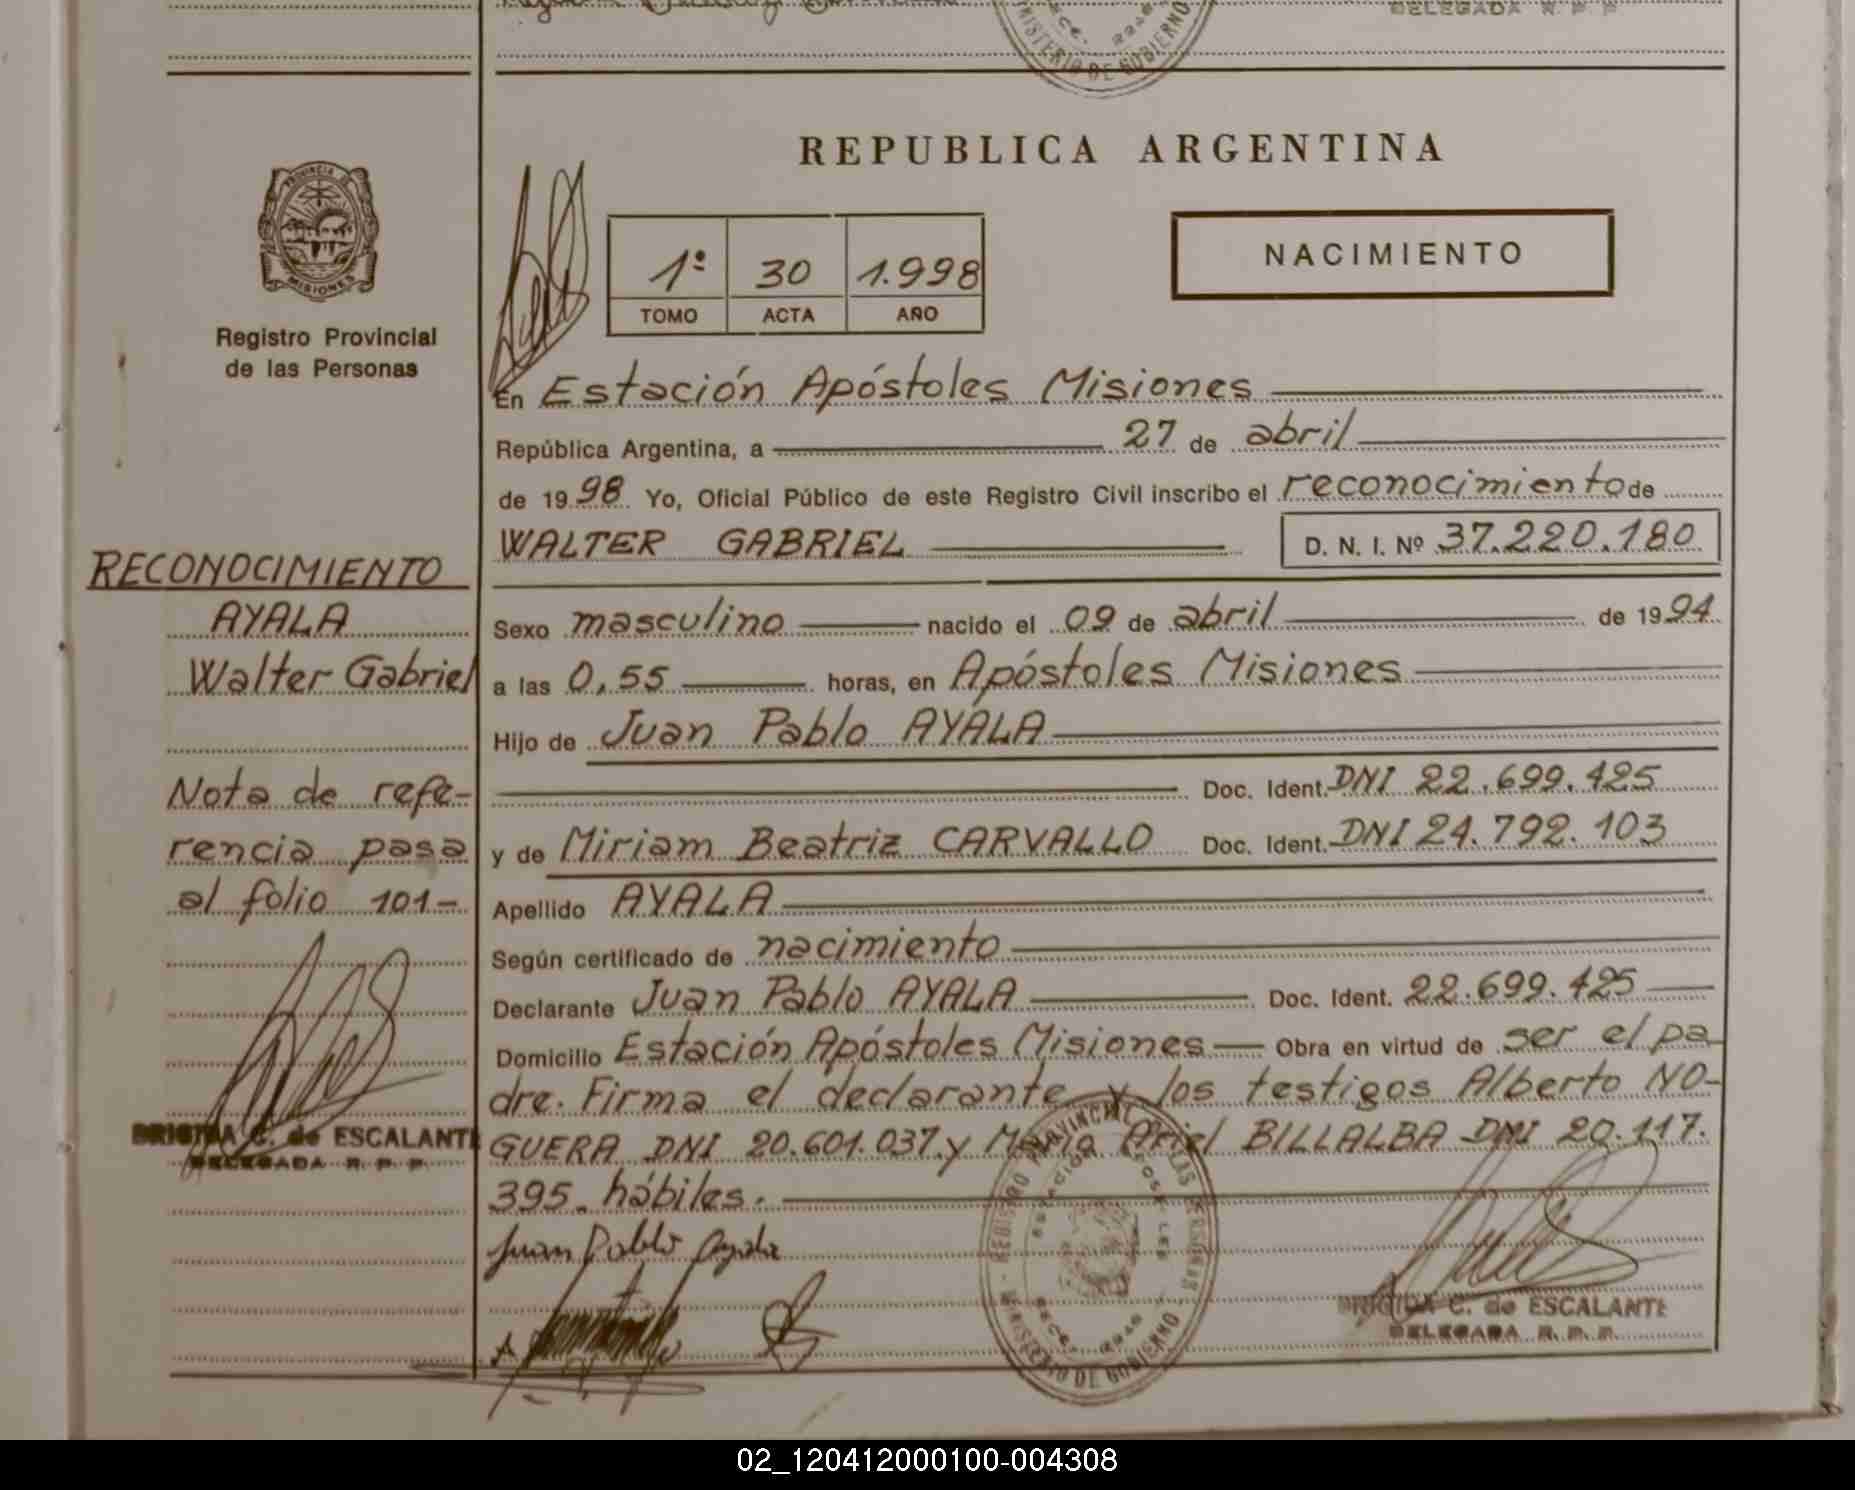 DELEGADA R. P. P.
MINISTERIO DE GOBIERNO
REPUBLICA ARGENTINA
PROVINCIA DE
MISIONES
Registro Provincial
de las Personas
1º 30 1.998
TOMO ACTA AÑO
NACIMIENTO
En Estación Apóstoles Misiones
República Argentina, a 27 de abril
de 1998 Yo, Oficial Público de este Registro Civil inscribo el reconocimiento de
WALTER GABRIEL D. N. I. Nº 37.220.180
RECONOCIMIENTO
AYALA
Walter Gabriel
Nota de refe-
rencia pasa
al folio 101-
BRIGIDA C. de ESCALANTE
DELEGADA R. P. P.
Sexo masculino nacido el 09 de abril de 1994
a las 0,55 horas, en Apóstoles Misiones
Hijo de Juan Pablo AYALA
Doc. Ident. DNI 22.699.425
y de Miriam Beatriz CARVALLO Doc. Ident. DNI 24.792.103
Apellido AYALA
Según certificado de nacimiento
Declarante Juan Pablo AYALA Doc. Ident. 22.699.425
Domicilio Estación Apóstoles Misiones Obra en virtud de ser el pa
dre. Firma el declarante y los testigos Alberto NO-
GUERA DNI 20.601.037 y Ariel BILLALBA DNI 20.117.
395. hábiles.
Juan Pablo Ayala
REGISTRO PROVINCIAL DE LAS PERSONAS
MINISTERIO DE GOBIERNO
BRIGIDA C. de ESCALANTE
DELEGADA R. P. P.
02_120412000100-004308